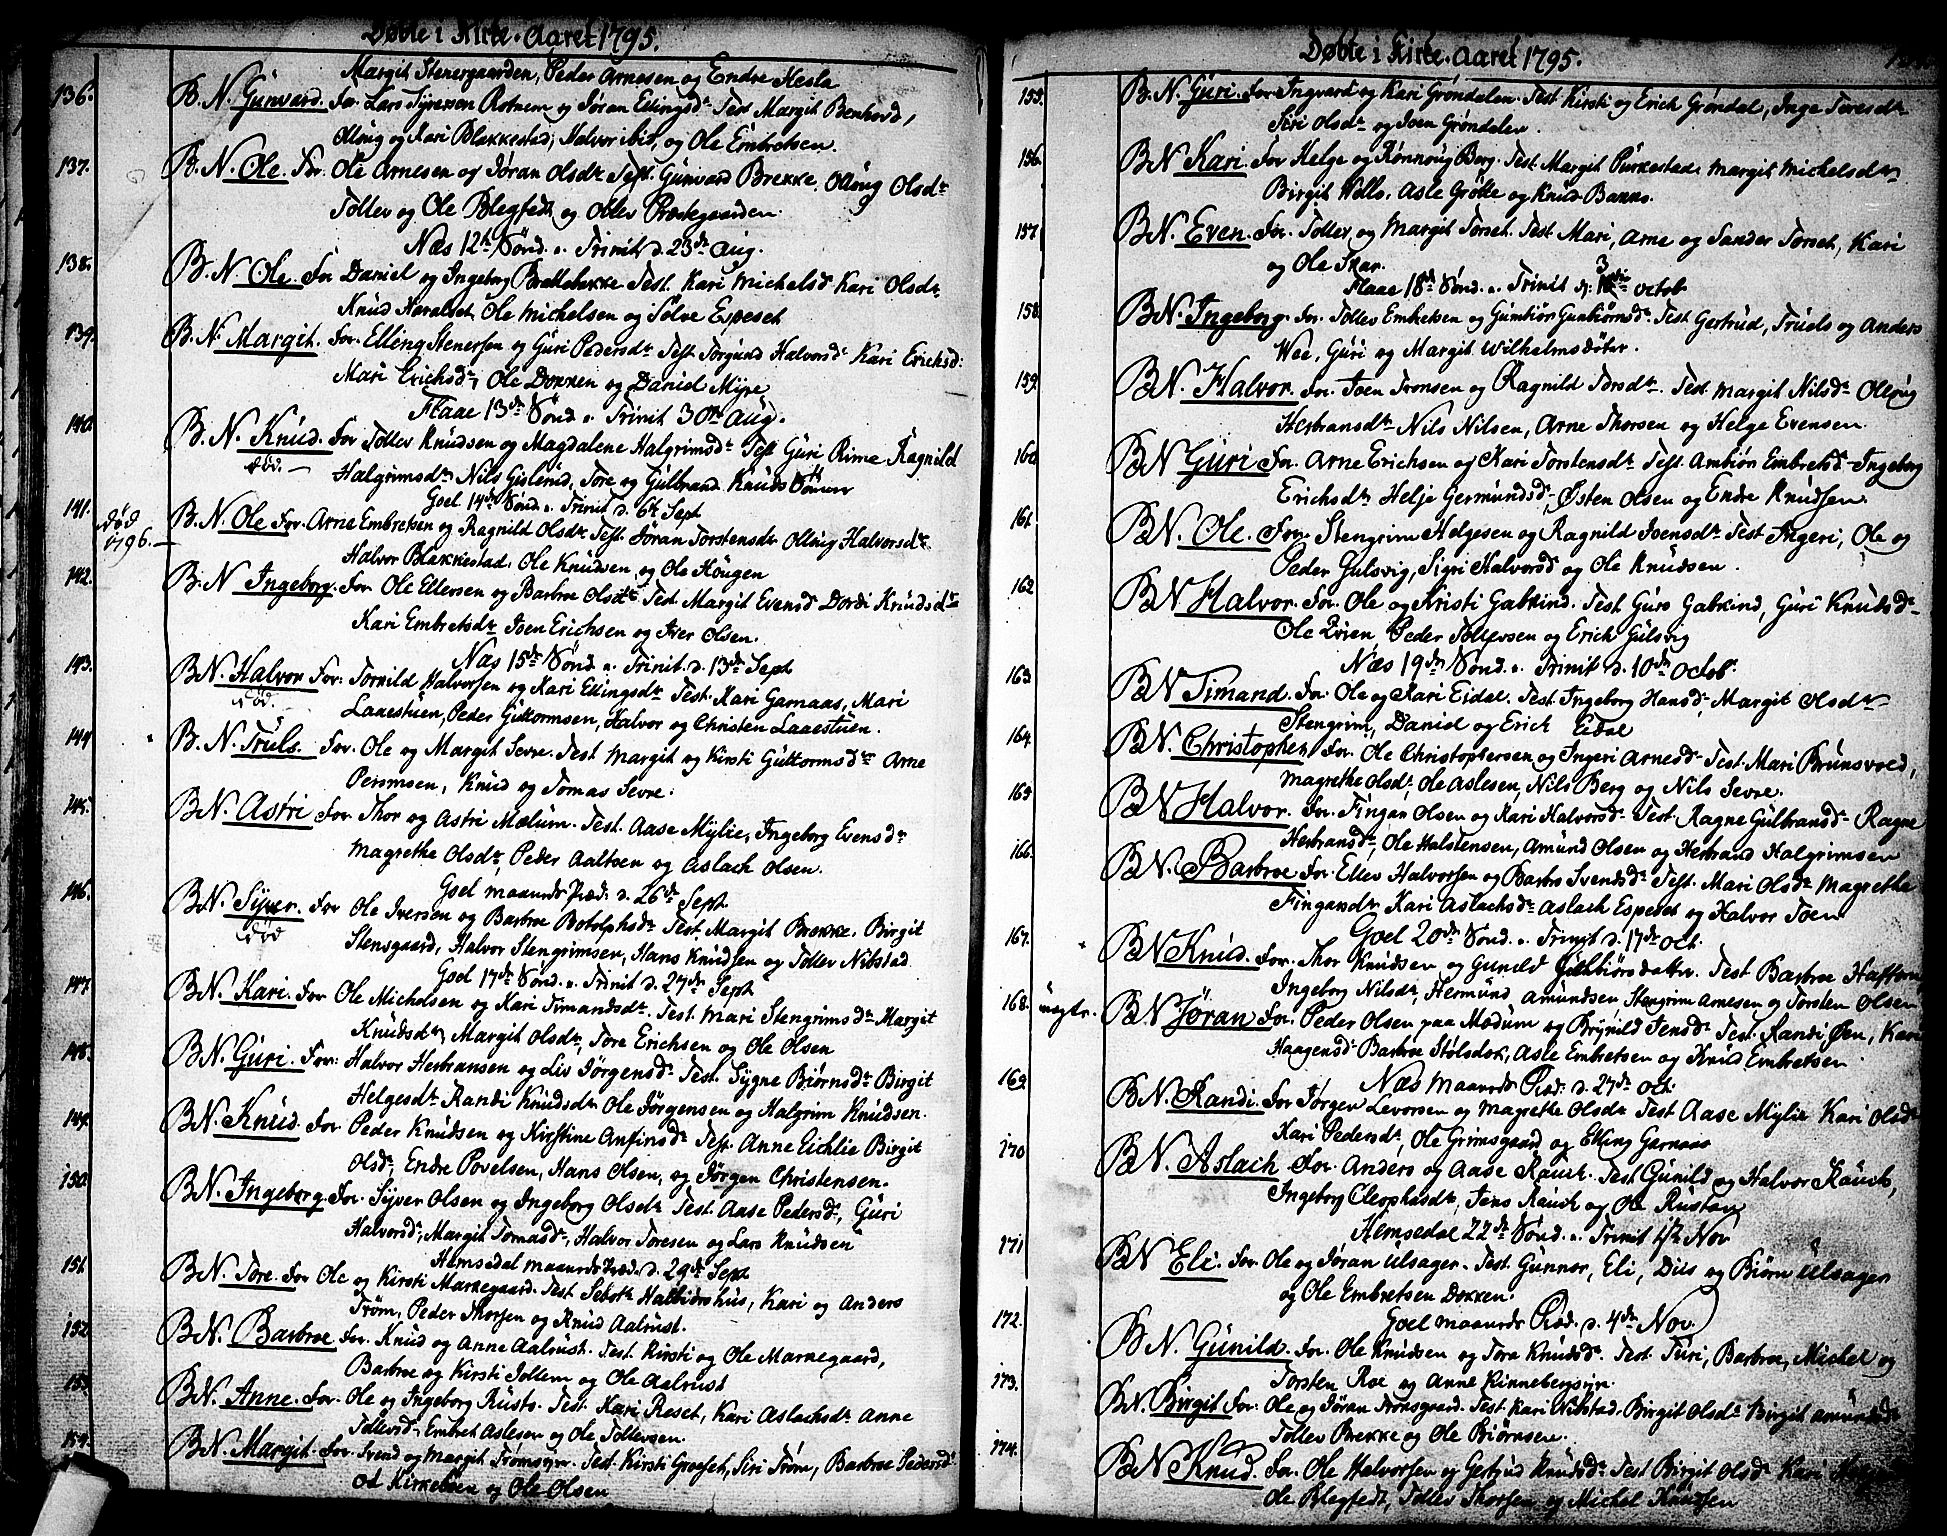 Døbte i Kirke. Aaret 1795.
Margit Stenergaarden, Peder Arnesen og Endre Hesla
136. B. N. Gunvard. For. Lars Syversen Rotnem og Jøran Ellingsdr Test Margit Benhovd,
Olloug og Kari Blakkestad, Halvor ibid, og Ole Embretsen.
137. B. N. Ole. For. Ole Arnesen og Jøran Olsdr Test. Gunvard Brekke, Olloug Olsdr
Tollev og Ole Blegfedt og Ollev Præstegaarden.
Næs 12te Sønd. a. Trinit d. 23de Aug.
138. B. N. Ole. For Daniel og Ingeborg Brattebække Test. Kari Michelsd Kari Olsdr
Knud Ole Michelsen og Solve Espeset
139. B. N. Margit. For. Elling Stenersen og Guri Pedersdr Test Torgund Halvorsd Kari Erichsd.
Mari Erichsdr, Ole Dokken og Daniel Myre
Flaae 13de Sønd a. Trinit 30te Aug.
140. B. N. Knud. For Tollev Knudsen og Magdalene Halgrimsdr Test Guri Rime Ragnild
død. — Halgrimsdr Nils Gislerud, Tore og Gulbrand Knuds Sönner
Goel 14de Sønd a. Trinit d. 6te Sept
141. død 1796. — B. N. Ole For. Arne Embretsen og Ragnild Olsdr Test. Jøran Torstensdr Olloug Halvorsdr
Halvor Blakkestad. Ole Knudsen og Ole Hougen
142. B. N Ingeborg. For. Ole Ellersen og Barbroe Olsdr Test Margit Evensd Dordi Knudsdr
Kari Embretsdr Joen Erichsen og Iver Olsen.
Næs 15de Sønd a. Trinit d. 13de Sept
143. B N. Halvor For: Torkild Halvorsen og Kari Ellingsdr Test. Kari Garnaas, Mari
død. Laaestuen, Peder Guttormsen, Halvor og Christen Laaestuen.
144 B. N. Truls. For. Ole og Margit Sevre. Test Margit og Kirsti Guttormsdr Arne
Knud og Tomas Sevre.
145. B N. Astri For. Thor og Astri Mælum. Test. Aase Mylie, Ingeborg Evensdr
Magrethe Olsdr, Peder Aaltsen og Aslach Olsen.
Goel maaneds Præd. d. 26de Sept
146. B N. Syver. For Ole Iversen og Barbroe Botolphsdr Test. Margit Brekke. Birgit
død Stensgaard, Halvor Stengrimsen, Hans Knudsen og Tollev Nibstad
Goel 17de Sønd. a. Trinit d. 27de Sept
147. B N. Kari. For Ole Michelsen og Kari Timandsdr. Test. Mari Stengrimsdr Margit
Knudsdr, Margit Olsdr, Tore Erichsen og Ole Olsen
148. B N. Guri. For: Halvor Herbransen og Liv Jörgensdr Test. Sygne Biørnsdr Birgit
Helgesdr Randi Knudsdr Ole Jörgensen og Halgrim Knudsen.
149. B N. Knud For Peder Knudsen og Kirstine Anfinsdr Test. Anne Eichlie Birgit
Olsdr, Endre Povelsen, Hans Olsen, og Jörgen Christensen.
150. B N. Ingeborg. For. Syver Olsen og Ingeborg Olsdr Test. Aase Pedersdr, Guri
Halvorsdr, Margit Tomasdr, Halvor Toresen og Lars Knudsen
Hemsedal maaneds Præd. d. 29de Sept
151. B N. Tore. For Ole og Kirsti Markegaard. Test Halbiörshus, Kari og Anders
Trøm, Peder Thorsen og Knud Aalrust.
152 B N. Barbroe For. Knud og Anne Aalrust. Test. Kirsti og Ole Markegaard,
Barbroe og Kirsti og Ole Aalrust
153. B N. Anne. For. Ole og Ingeborg Rusto. Test. Kari Reset, Kari Aslachsdr Anne
Tollevsdr, Embret Aslesen og Ole Tollevsen.
154. B N. Margit. For. Svend og Margit Test. Kirsti Grøset, Siri Trøm, Barbroe Pedersd
Od Kirkebøen og Ole Olsen
Døbte i Kirke. Aaret 1795.
155. B. N. Guri. For Ingvard og Kari Grøndalen. Test. Kirsti og Erich Grøndal, Inge Toresdr
Siri Olsdr og Joen Grøndalen
156. B N Kari For Helge og Rønnoug Berg. Test. Margit Purkestad. Margit Michelsdr
Birgit Wello. Asle Grötte og Knud
157 B N. Even. For. Tollev og Margit Torset. Test Mari, Arne og Sander Torset, Kari
og Ole Skar.
Flaae 18de Sønd. a. Trinit d. 3 octob
158 B N. Ingeborg. For. Tollev Embretsen og Gunbiör Gunbiörnsdr Test Gertrud, Truels og Anders
Wee, Guri og Margit Wilhelmsdöter.
159. B N. Halvor. For. Joen Tronsen og Ragnild Torsdr. Test Margit Nilsdr Olloug
Herbransdr Nils Nilsen, Arne Thorsen og Helge Evensen.
160 B N Guri For. Arne Erichsen og Kari Torstensdr Test Ambiör Embretsd Ingeborg
Erichsdr Helje Germundsdr, Østen Olsen og Endre Knudsen.
161. B N. Ole. For. Stengrim Helgesen og Ragnild Joensdr Test Ingeri, Ole og
Peder Gulsvig, Sigri Halvorsd og Ole Knudsen.
162 B N Halvor. For. Ole og Kristi Gabkind. Test Guro Gabkind, Guri Knudsdr
Ole Qvien Peder Tollevsen og Erich Gulsvig
Næs 19de Sønd. a. Trinit d. 10de Octob.
163 B N Timand For Ole og Kari Eidal. Test Ingeborg Hansd, Margit Olsdr
Stengrim, Daniel og Erich Eidal
164. B N. Christopher For. Ole Christophersen og Ingeri Arnesdr Test. Mari Brunsvold,
Magrethe Olsdr, Ole Aslesen, Nils Berg og Nils Sevre.
165 B N Halvor. For. Fingan Olsen og Kari Halvorsdr Test. Ragne Gulbransdr Ragne
Herbransdr, Ole Halstensen, Amund Olsen og Herbrand Halgrimsen
166. B N. Barbroe For. Ellev Halvorsen og Barbro Svendsdr Test. Mari Olsdr Magrethe
Fingansdr Kari Aslachsdr Aslach Espeset og Halvor Toen
Goel 20de Sønd. a. Trinit d. 17de Oct.
167. B N Knud. For. Thor Knudsen og Gunild Gunbiörsdatter. Test Barbroe
Ingeborg Nilsdr, Hermund Amundsen Stengrim Arnesen og Torsten Olsen
168. uægte. B N Jøran For. Peder Olsen paa Modum og Brynild Jensdr Test. Randi Øen, Kari
Haagensd Barbroe Asle Embretsen og Knud Embretsen
Næs maaneds Præd. d. 27de oct.
169. B N. Randi. For Jörgen Levorsen og Magrethe Olsdr Test Aase Mylie Kari Olsdr
Kari Pedersdr, Ole Grimsgaard og Elling Garnaas
170 B N. Aslach For. Anders og Aase Rauch. Test Gunild og Halvor Rauch,
Ingeborg Cleophasdr, Jens Rauch og Ole Rustan
Hemsedal 22de Sønd. a. Trinit 1te Nov
171 B N Eli. For. Ole og Jöran Ulsager. Test. Gunnor, Eli, Diis og Biörn Ulsager
og Ole Embretsen Dokken.
Goel maaneds Præd. d. 4de Nov
172. B N. Gunild For. Ole Knudsen og Tora Knudsdr. Test. Turi, Barbroe, Michel og
Torsten Roe og Anne
173. B N. Birgit For. Ole og Jöran Tronsgaard. Test. Kari Nibstad. Birgit Olsdr Birgit Amundsdr
Tollev Brekke og Ole Biörnsen.
174. B N Knud. For. Ole Halvorsen og Gertrud Knudsdr Test Birgit Olsdr Kari
Ole Blegfedt, Tollev Thorsen og Michel Knudsen